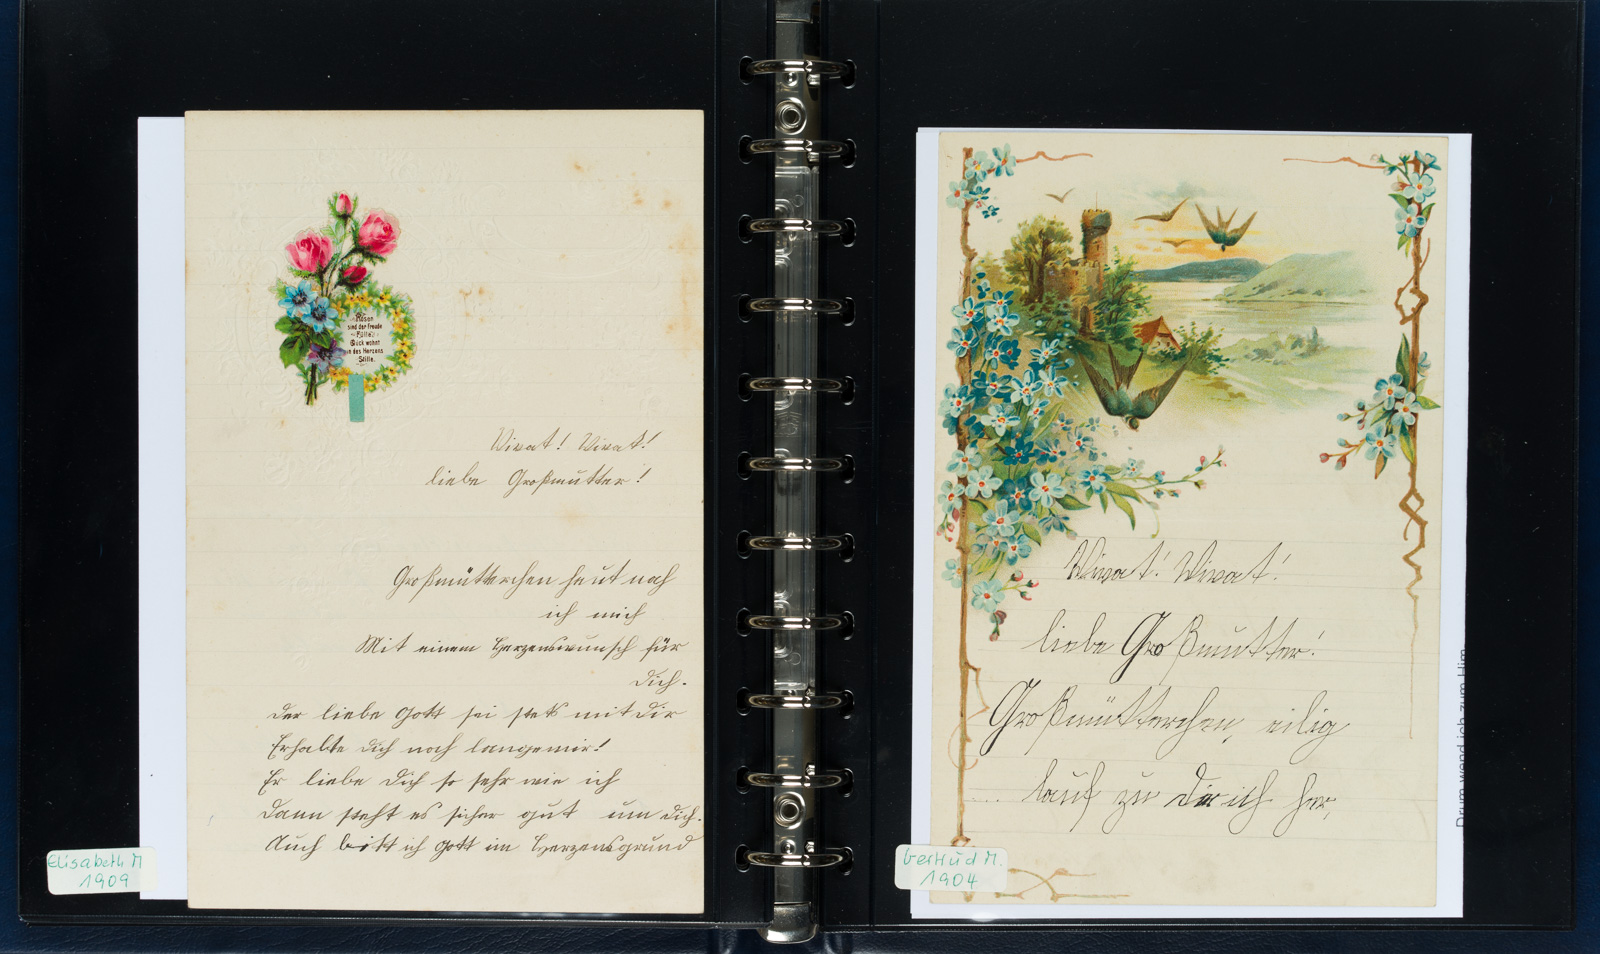 Rosen
sind der Freude
Fülle,
Glück wohnt
in des Herzens
Stille.
Vivat! Vivat!
liebe Großmutter!
Großmütterchen heut nah
ich mich
Mit einem Herzenswunsch für
dich.
Der liebe Gott sei stets mit dir
Erhalte dich noch lange mir!
Er liebe dich so sehr wie ich
Dann steht es sicher gut um dich.
Auch bitt ich Gott im Herzensgrund
Elisabeth M
1909
Vivat! Vivat!
liebe Großmutter!
Großmütterchen, eilig
... lauf zu dir ich her,
Gertrud M.
1904
Drum wend ich zum Him